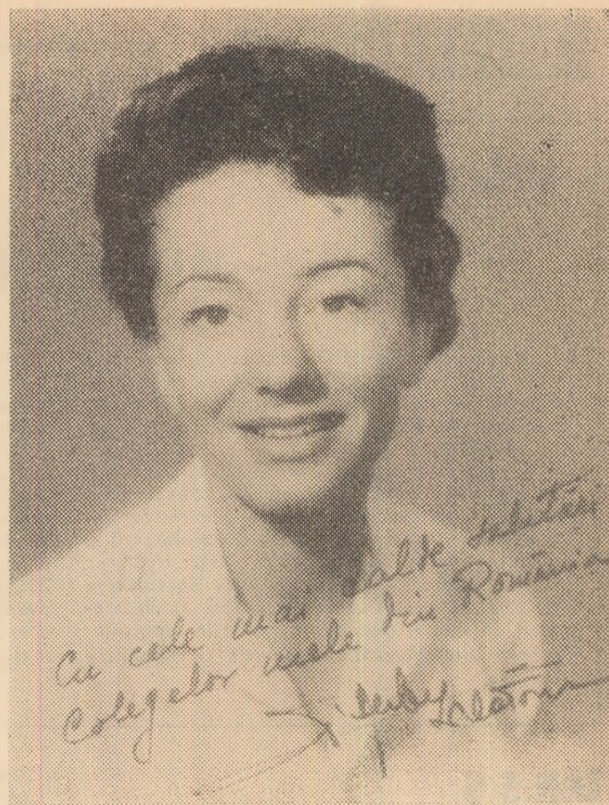 Cu cele mai calde salutări
Colegelor mele din România